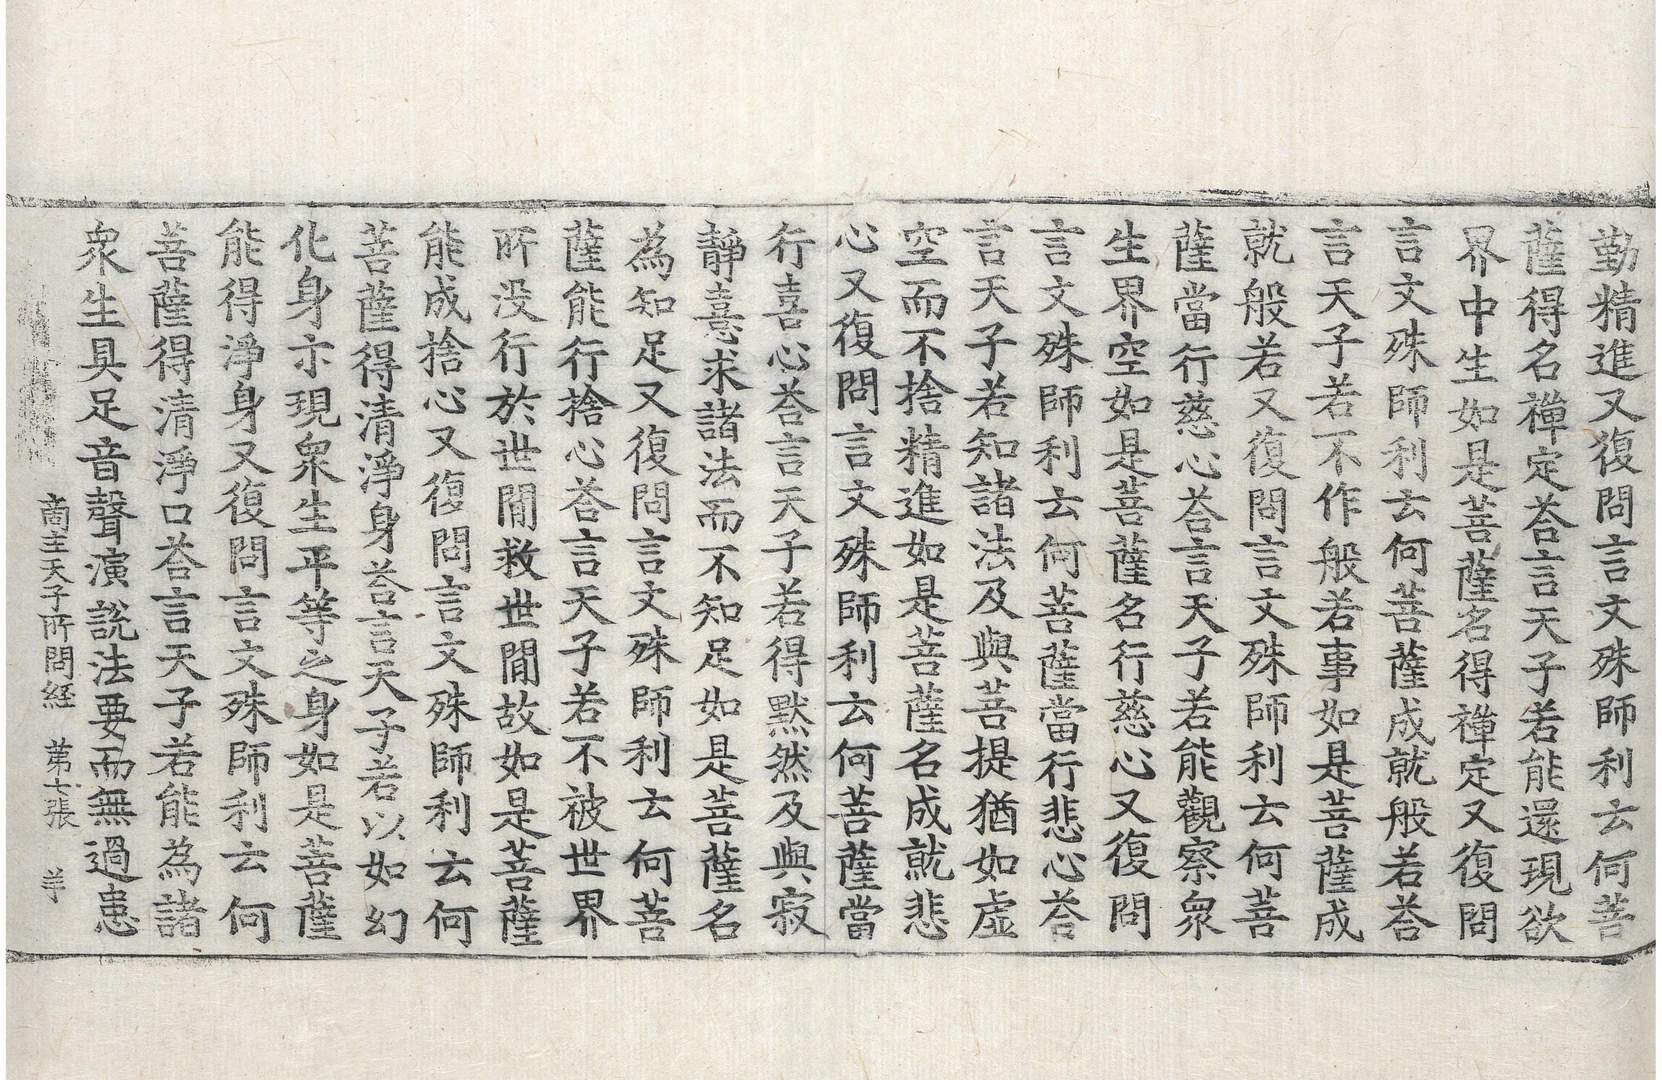 勤精進又復問言文殊師利云何菩
薩得名禪定荅言天子若能還現欲
界中生如是菩薩名得禪定又復問
言文殊師利云何菩薩成就般若荅
言天子若不作般若事如是菩薩成
就般若又復問言文殊師利云何菩
薩當行慈心荅言天子若能觀察衆
生界空如是菩薩名行慈心又復問
言文殊師利云何菩薩當行悲心荅
言天子若知諸法及與菩提猶如虛
空而不捨精進如是菩薩名成就悲
心又復問言文殊師利云何菩薩當
行喜心荅言天子若得默然及與寂
靜憙求諸法而不知足如是菩薩名
為知足又復問言文殊師利云何菩
薩能行捨心荅言天子若不被世界
所没行於世閒救世閒故如是菩薩
能成捨心又復問言文殊師利云何
菩薩得清淨身荅言天子若以如幻
化身亦現衆生平等之身如是菩薩
能得淨身又復問言文殊師利云何
菩薩得清淨口荅言天子若能為諸
衆生具足音聲演說法要而無過患
商主天子所問経　第七張　羊